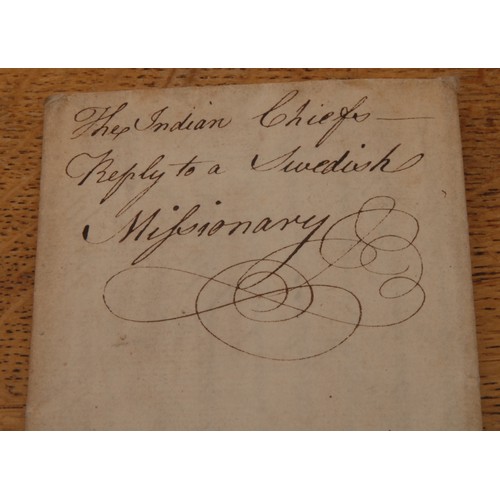 The Indian Chiefs —
Reply to a Swedish
Miſsionary